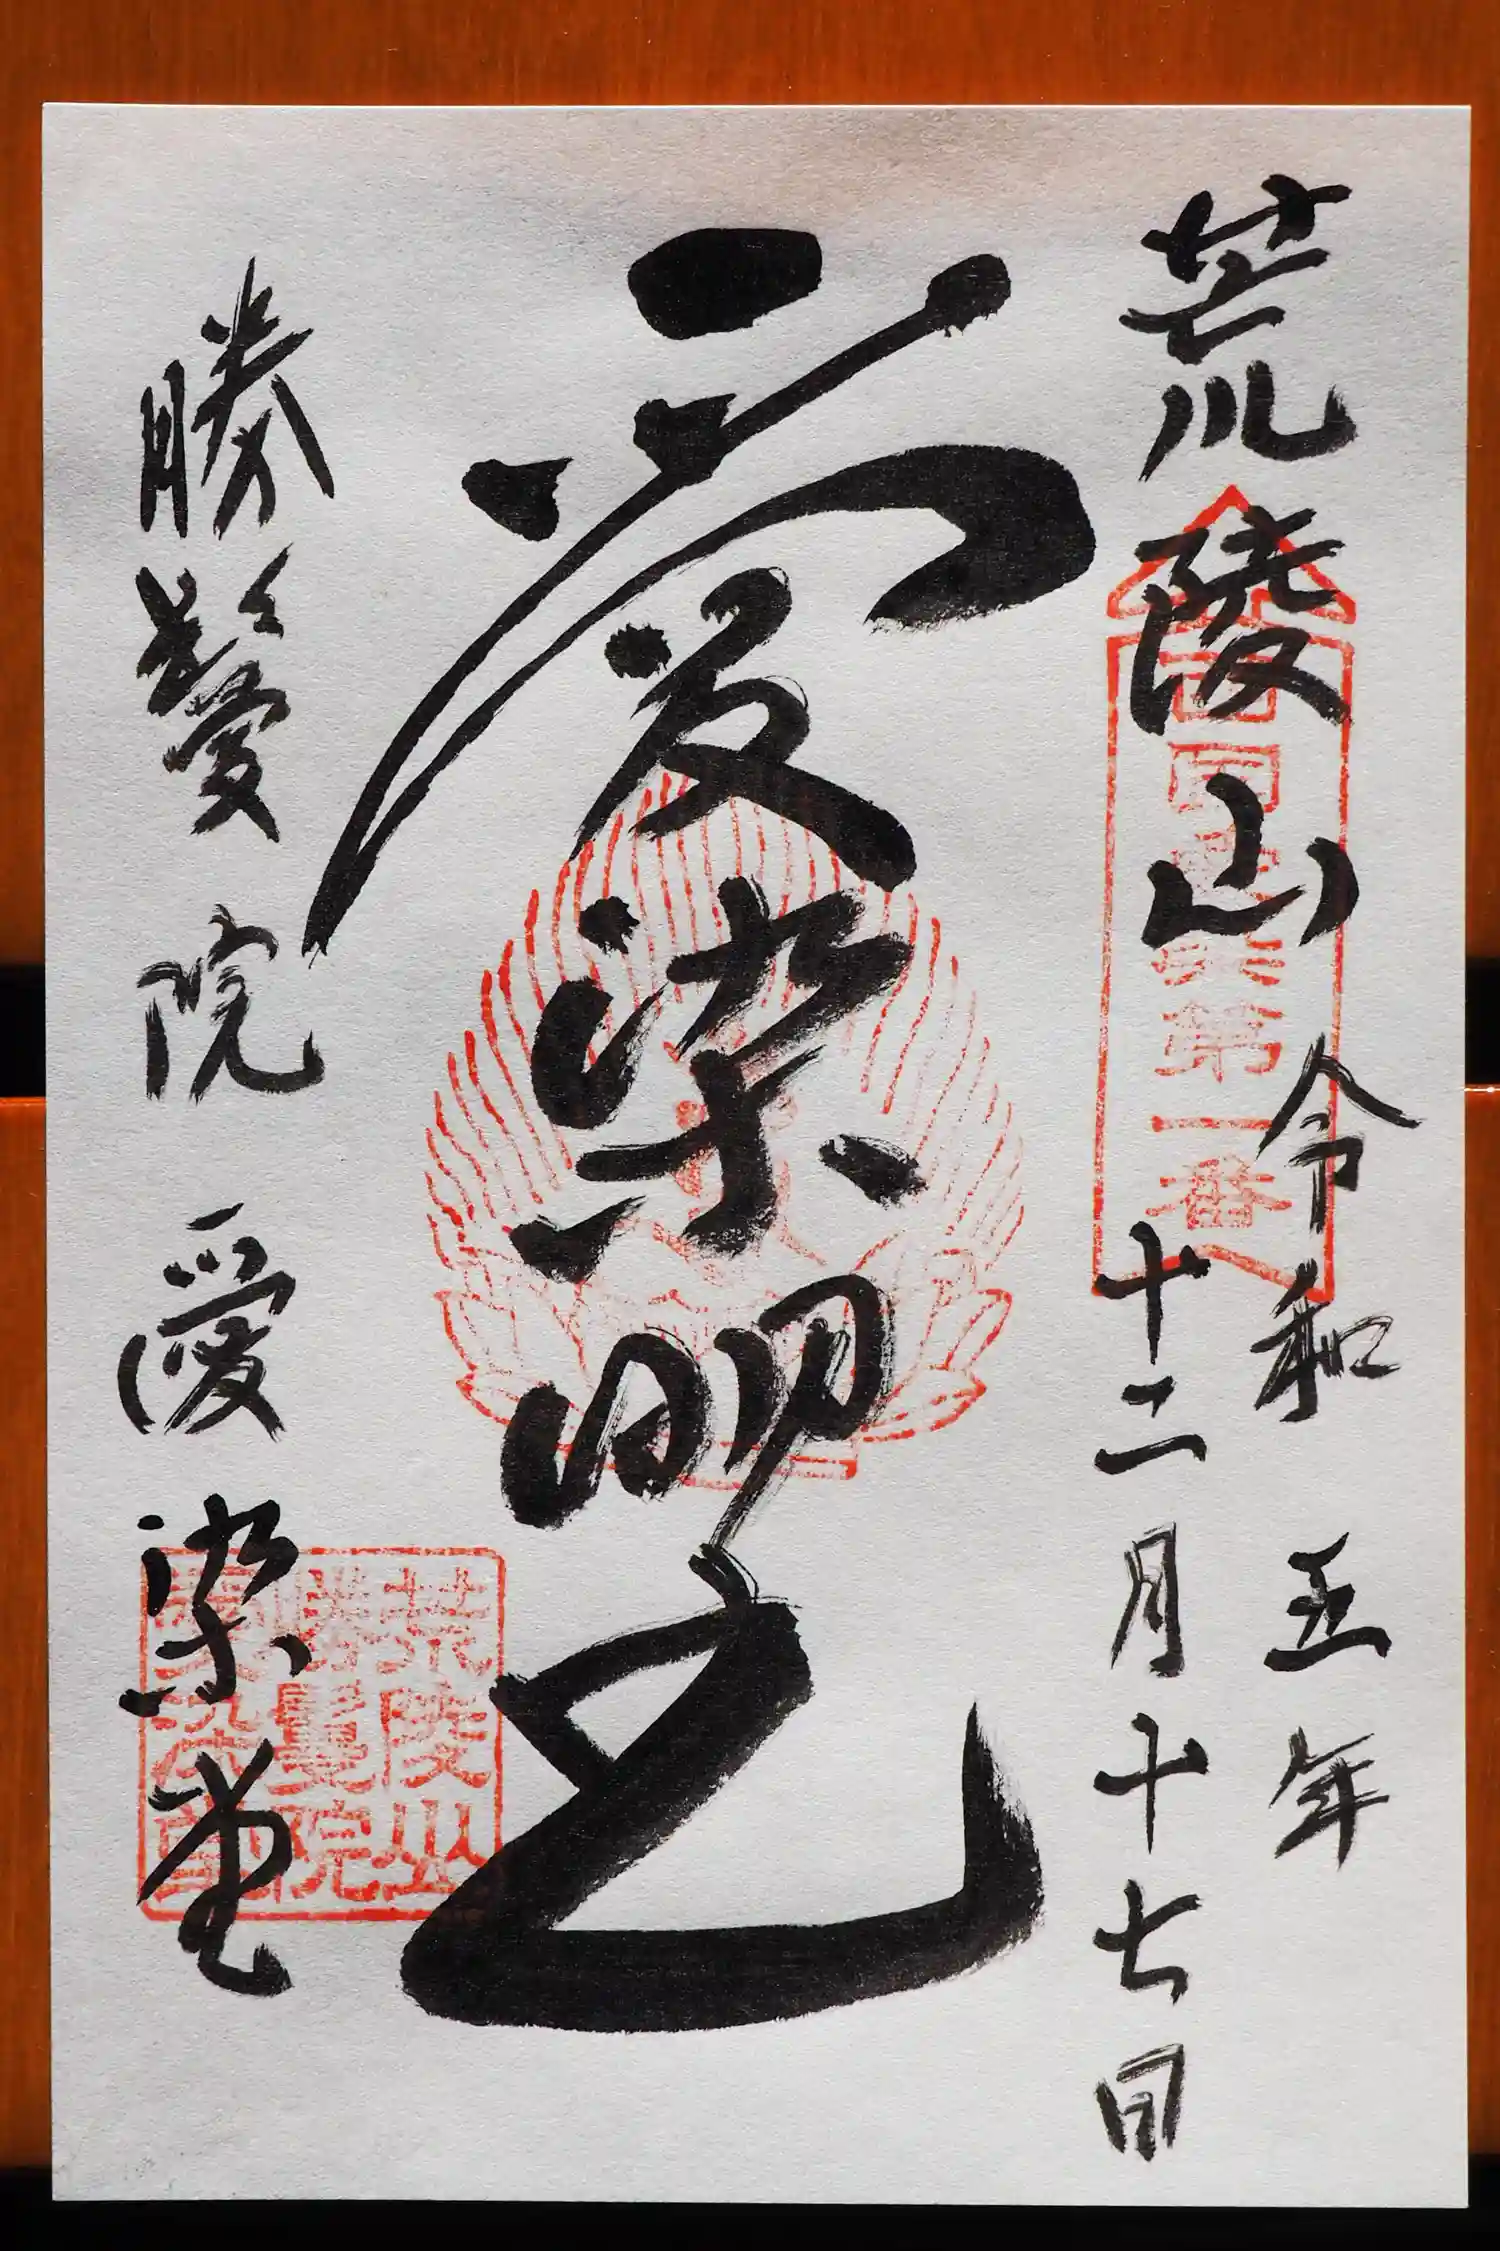 荒陵山
令和五年
十二月十七日
西国愛染第一番
愛染明王
勝鬘院愛染堂
荒陵山
勝鬘院
愛染堂